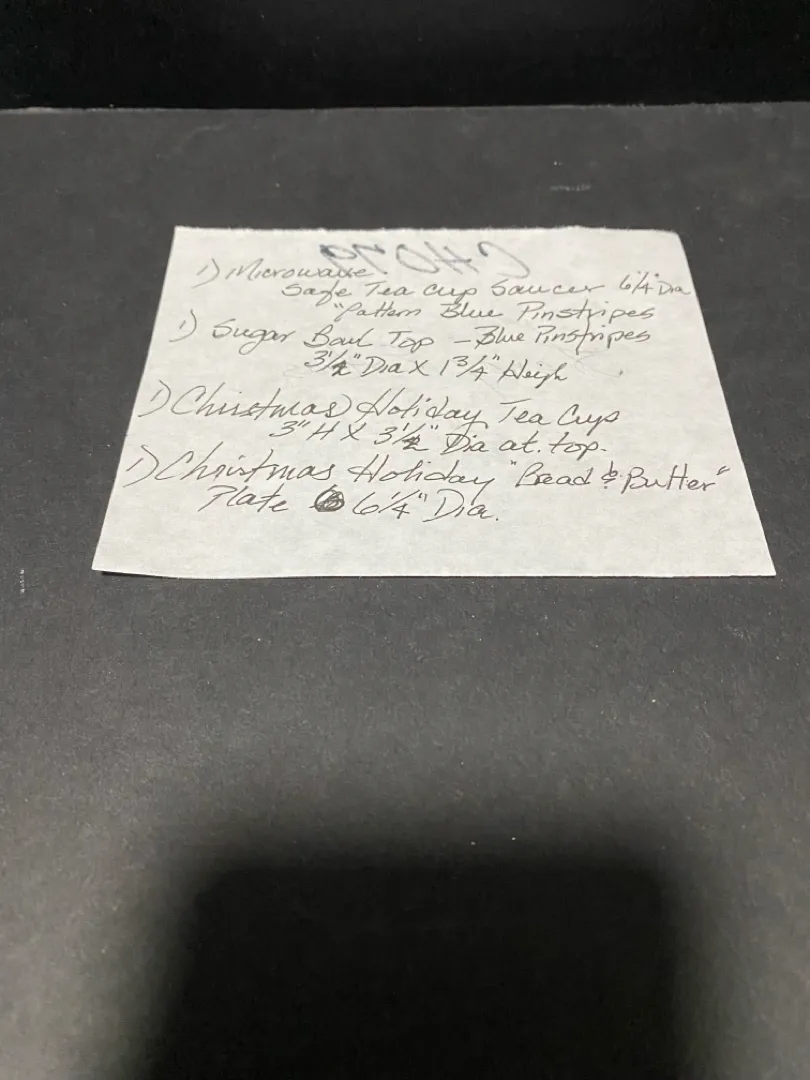 1) Microwave
Safe Tea Cup Saucer 6 1/4" Dia
"Pattern Blue Pinstripes
1) Sugar Bowl Top - Blue Pinstripes
3 1/2" Dia X 1 3/4" Heigh
1) Christmas Holiday Tea Cups
3" H X 3 1/2" Dia at top.
1) Christmas Holiday "Bread & Butter"
Plate 6 1/4" Dia.